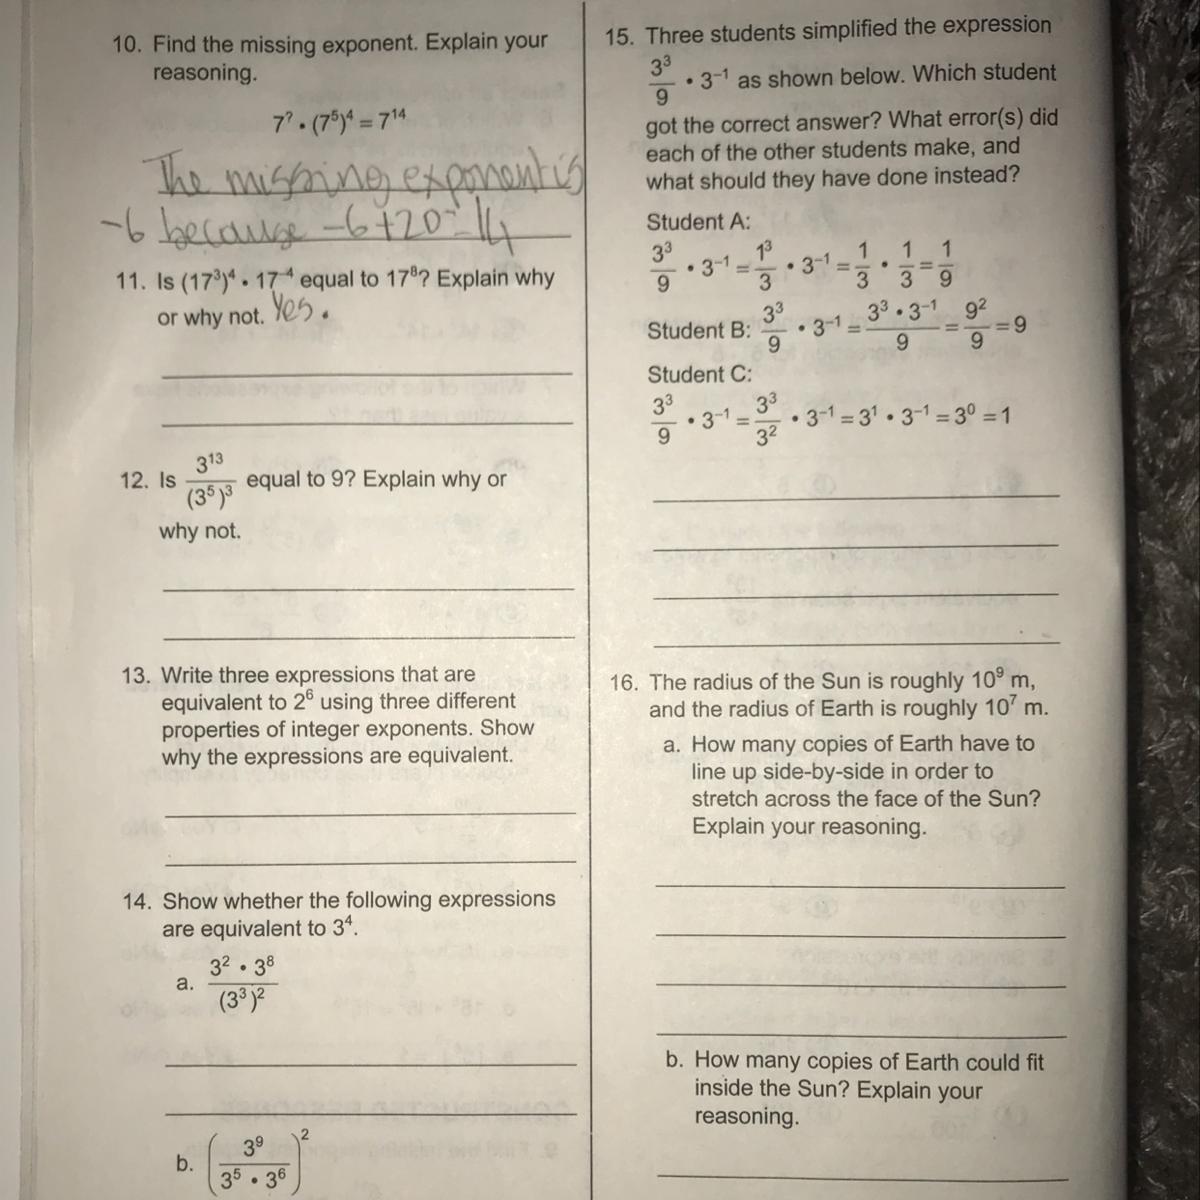 10. Find the missing exponent. Explain your
reasoning.
7^? • (7^5)^4 = 7^14
The missing exponent is
-6 because -6+20=14
11. Is (17^3)^4 • 17^-4 equal to 17^8? Explain why
or why not. Yes.
12. Is 3^13/(3^5)^3 equal to 9? Explain why or
why not.
13. Write three expressions that are
equivalent to 2^6 using three different
properties of integer exponents. Show
why the expressions are equivalent.
14. Show whether the following expressions
are equivalent to 3^4.
a. (3^2 • 3^8)/(3^3)^2
b. (3^9/(3^5 • 3^6))^2
15. Three students simplified the expression
3^3/9 • 3^-1 as shown below. Which student
got the correct answer? What error(s) did
each of the other students make, and
what should they have done instead?
Student A:
3^3/9 • 3^-1 = 1^3/3 • 3^-1 = 1/3 • 1/3 = 1/9
Student B: 3^3/9 • 3^-1 = (3^3 • 3^-1)/9 = 9^2/9 = 9
Student C:
3^3/9 • 3^-1 = 3^3/3^2 • 3^-1 = 3^1 • 3^-1 = 3^0 = 1
16. The radius of the Sun is roughly 10^9 m,
and the radius of Earth is roughly 10^7 m.
a. How many copies of Earth have to
line up side-by-side in order to
stretch across the face of the Sun?
Explain your reasoning.
b. How many copies of Earth could fit
inside the Sun? Explain your
reasoning.